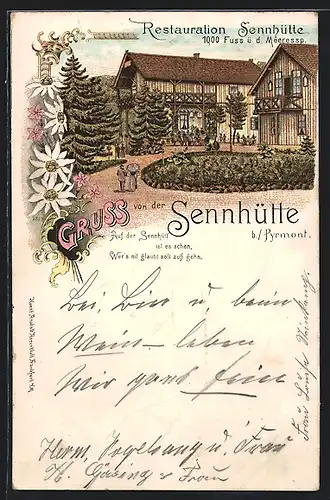 Restauration Sennhütte
1000 Fuss ü. d. Meeressp.
GRUSS von der Sennhütte
b./ Pyrmont.
Auf der Sennhütt
ist es schen,
Wer's nit glaubt soll aufi gehn.
Bei Bier u. beim
Wein leben
wir ganz fein
Herm. Vogelsang u. Frau
H. u Frau
Frau